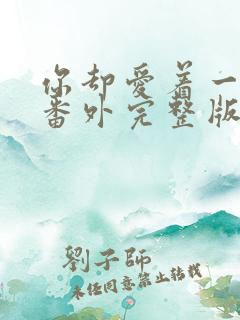 你却爱着一
番外完整版
劉子師
未经同意禁止转载